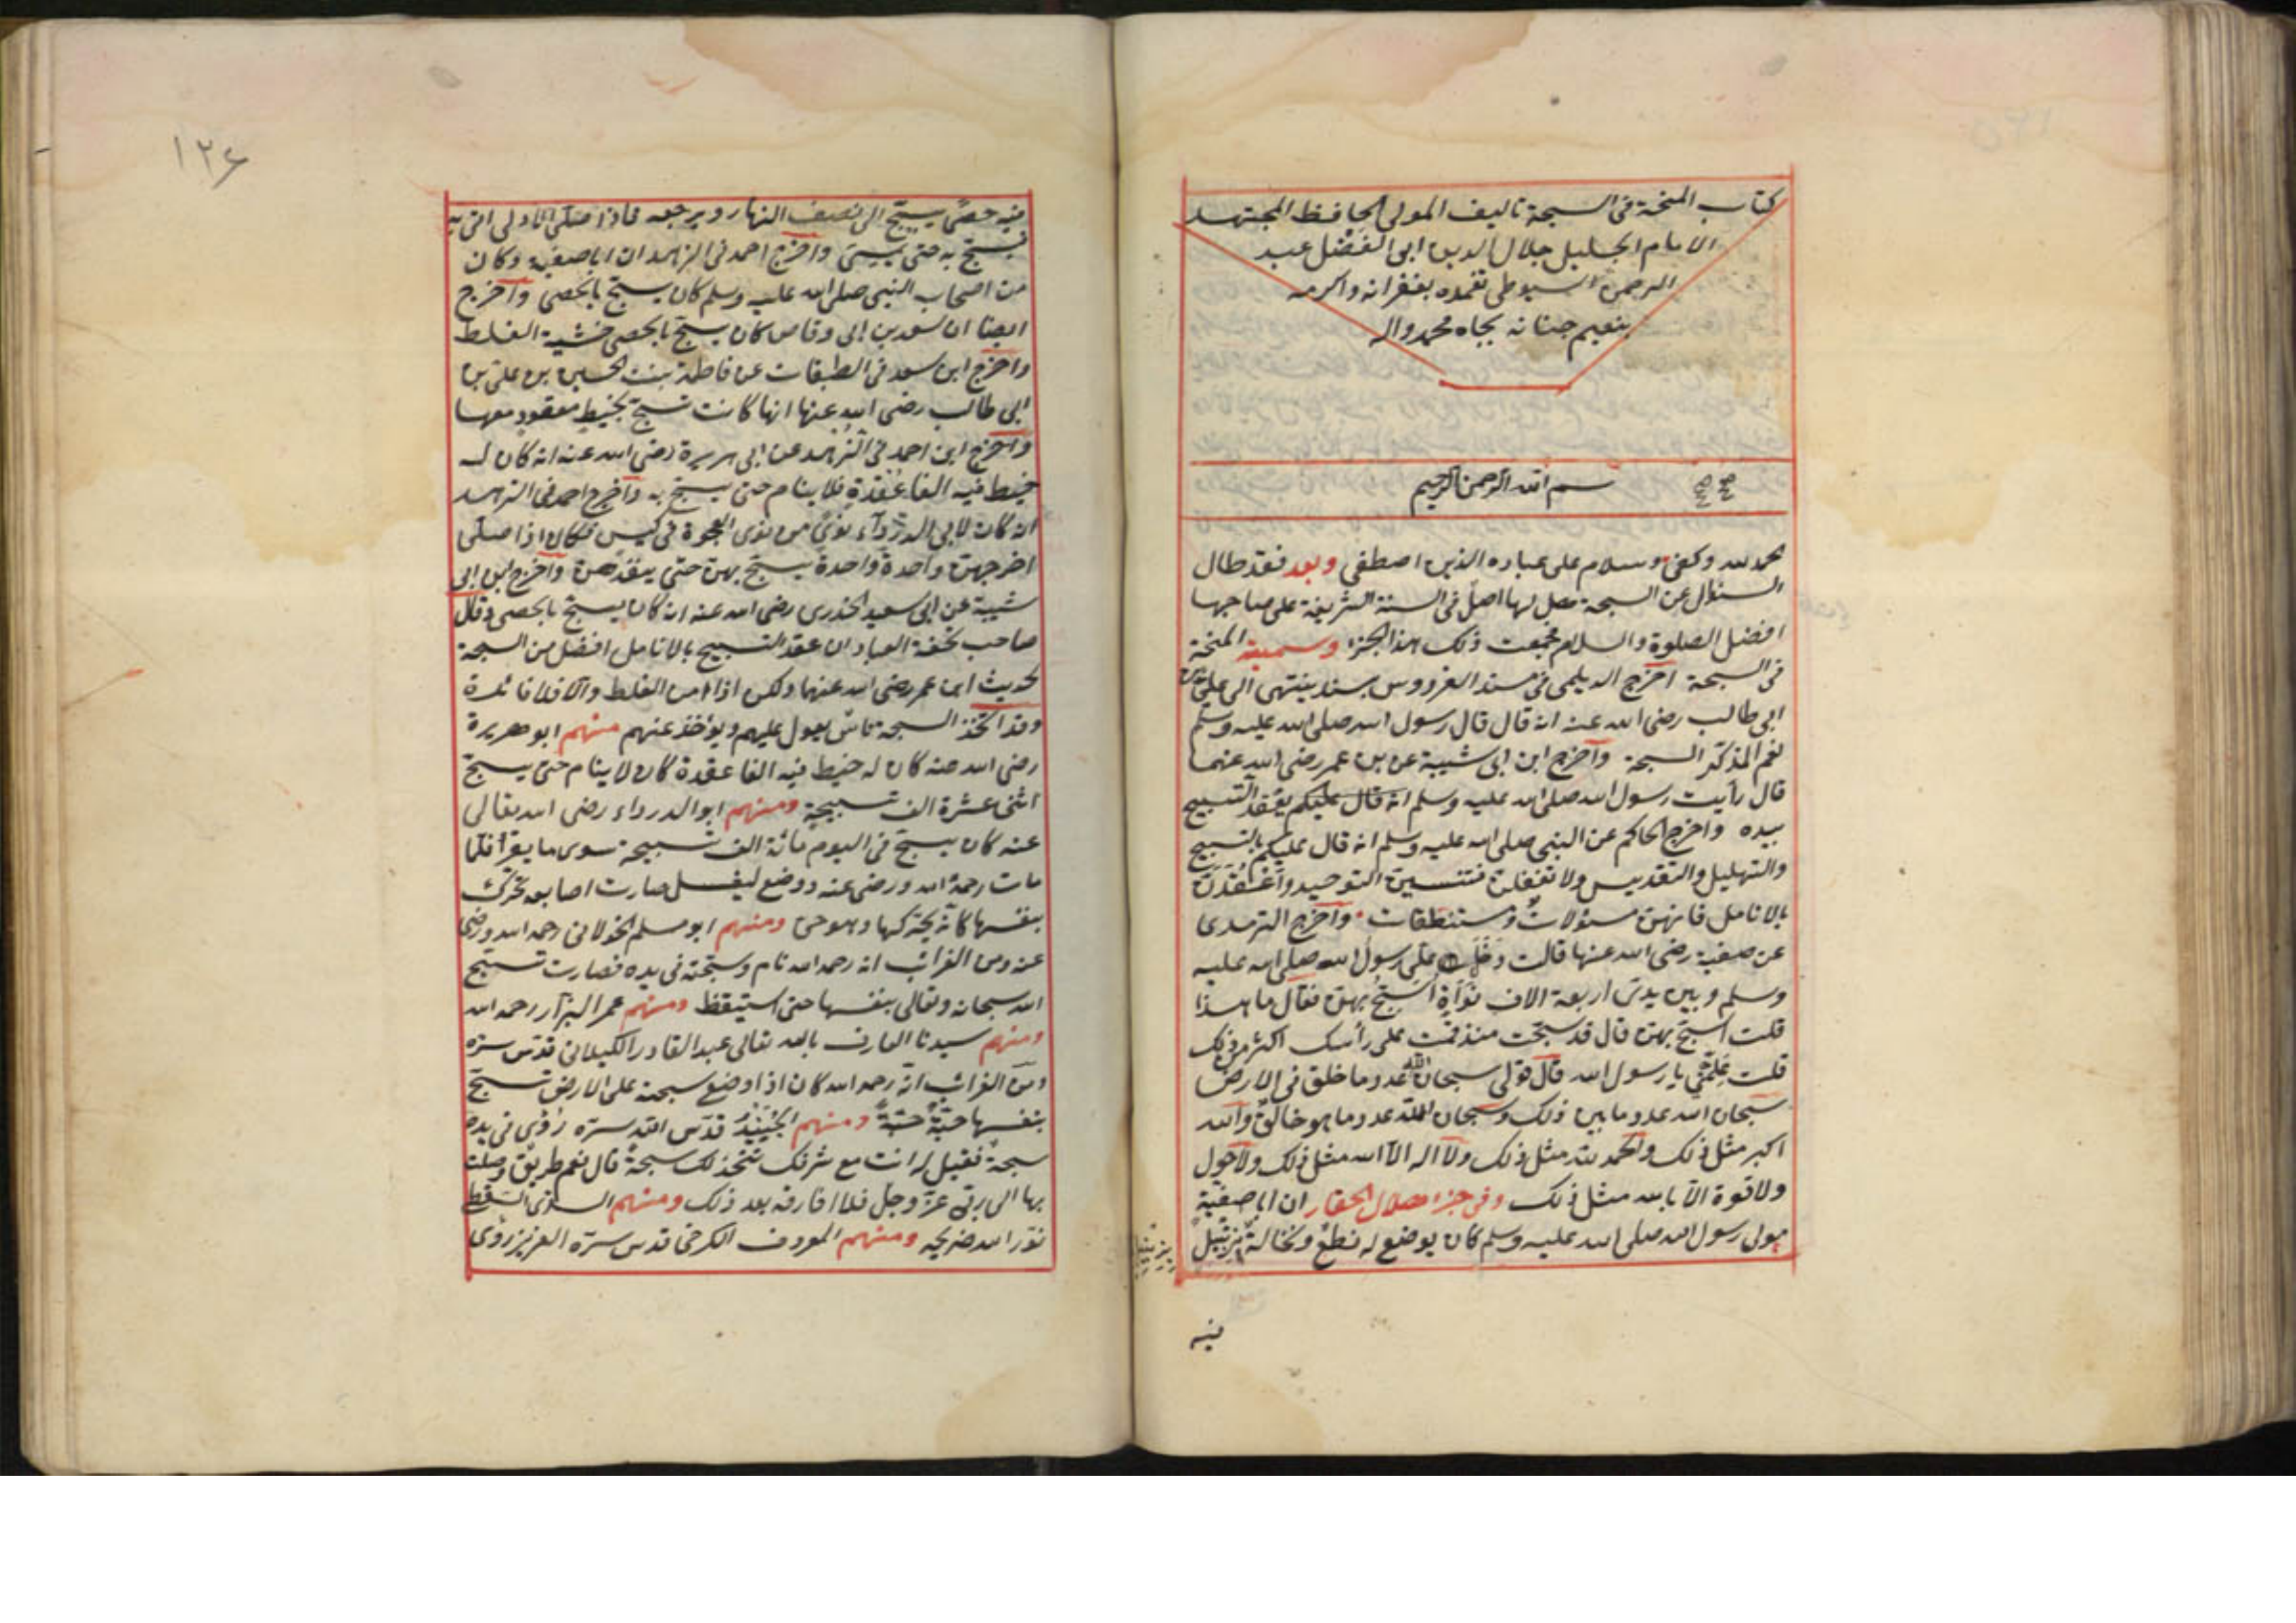 كتاب المنحة فى السبحة تاليف المولى الحافظ المجتهد
الامام الجليل جلال الدين ابى الفضل عبد
الرحمن السيوطى تغمده بغفرانه واكرمه
بنعيم جنانه بجاه محمد واله
بسم الله الرحمن الرحيم
الحمد لله وكفى وسلام على عباده الذين اصطفى وبعد فقد طال
السئوال عن السبحة هل لها اصل فى السنة الشريفة على صاحبها
افضل الصلوة والسلام فجمعت ذلك هذا الجزء وسميته المنحة
فى السبحة اخرج الديلمى فى مسند الفردوس بسند ينتهى الى على بن
ابى طالب رضى الله عنه انه قال قال رسول الله صلى الله عليه وسلم
نعم المذكّر السبحة واخرج ابن ابى شيبة عن بن عمر رضى الله عنهما
قال رأيت رسول الله صلى الله عليه وسلم انه قال عليكم يعقد التسبيح
بيده واخرج الحاكم عن النبى صلى الله عليه وسلم انه قال عليكم بالتسبيح
والتهليل والتقديس ولا تغفلن فتنسين التوحيد واعقدن
بالانامل فانهن مسئولات ومستنطقات واخرج الترمدى
عن صفية رضى الله عنها قالت دخل على رسول الله صلى الله عليه
وسلم وبين يدىّ اربعة الاف نواة اسبّح بهنّ فقال ما هذا
قلت اسبّح بهنّ قال قد سبّحت منذ قمت على رأسك اكثر من ذلك
قلت علّمنى يا رسول الله قال قولى سبحان الله عدد ما خلق فى الارض
سبحان الله عدد ما بين ذلك وسبحان الله عدد ما هو خالق والله
اكبر مثل ذلك والحمد لله مثل ذلك ولا اله الا الله مثل ذلك ولا حول
ولا قوة الا بالله مثل ذلك وفى جزء هلال الحفار ان ابا صفية
مولى رسول الله صلى الله عليه وسلم كان يوضع له نطع ويخالة بزنبيل
فيه
١٢٤
فيه حصًى يسبّح الى نصف النهار ويرجعه فاذا صلّى الاولى اتى به
فسبّح به حتى يمسى واخرج احمد فى الزهد ان ابا صفية وكان
من اصحاب النبى صلى الله عليه وسلم كان يسبّح بالحصى واخرج
ايضا ان سعد بن ابى وقاص كان يسبّح بالحصى خشية الغلط
واخرج ابن سعد فى الطبقات عن فاطمة بنت الحسين بن على بن
ابى طالب رضى الله عنها انها كانت تسبّح بخيط معقود معها
واخرج ابن احمد فى الزهد عن ابى هريرة رضى الله عنه انه كان له
خيط فيه الفا عقدة فلا ينام حتى يسبّح به واخرج احمد فى الزهد
انه كان لابى الدرداء نوىً من نوى العجوة فى كيس فكان اذا صلى
اخرجهنّ واحدة واحدة يسبّح بهنّ حتى ينفدهنّ واخرج ابن ابى
شيبة عن ابى سعيد الخدرى رضى الله عنه انه كان يسبّح بالحصى وقال
صاحب تحفة العباد ان عقد التسبيح بالانامل افضل من السبحة
لحديث ابن عمر رضى الله عنهما ولكن اذا امن الغلط والّا فلا فائدة
وقد اتخذ السبحة ناس يعول عليهم ويؤخذ عنهم منهم ابو هريرة
رضى الله عنه كان له خيط فيه الفا عقدة كان لا ينام حتى يسبّح
اثنى عشرة الف تسبيحة ومنهم ابو الدرداء رضى الله تعالى
عنه كان يسبّح فى اليوم مائة الف تسبيحة سوى ما يقرأ فلمّا
مات رحمه الله ورضى عنه ووضع ليغسل صارت اصابعه تحرّك
بنفسها كانّه يحرّكها وهو حىّ ومنهم ابو مسلم الخولانى رحمه الله ورضى
عنه ومن الغرائب انه رحمه الله نام وسبحته فى يده فصارت تسبّح
الله سبحانه وتعالى بنفسها حتى استيقظ ومنهم عمر البزار رحمه الله
ومنهم سيدنا العارف بالله تعالى عبد القادر الكيلانى قدّس سرّه
ومن الغرائب انّه رحمه الله كان اذا وضع سبحته على الارض تسبّح
بنفسها حبّة حبّة ومنهم الجنيد قدّس الله سرّه رؤى فى يده
سبحة فقيل له انت مع شرفك تتخذ لك سبحة قال نعم طريق وصلت
بها الى ربّى عزّ وجلّ فلا افارقه بعد ذلك ومنهم السرى السقطى
نوّر الله ضريحه ومنهم المعروف الكرخى قدس سرّه العزيز رؤى